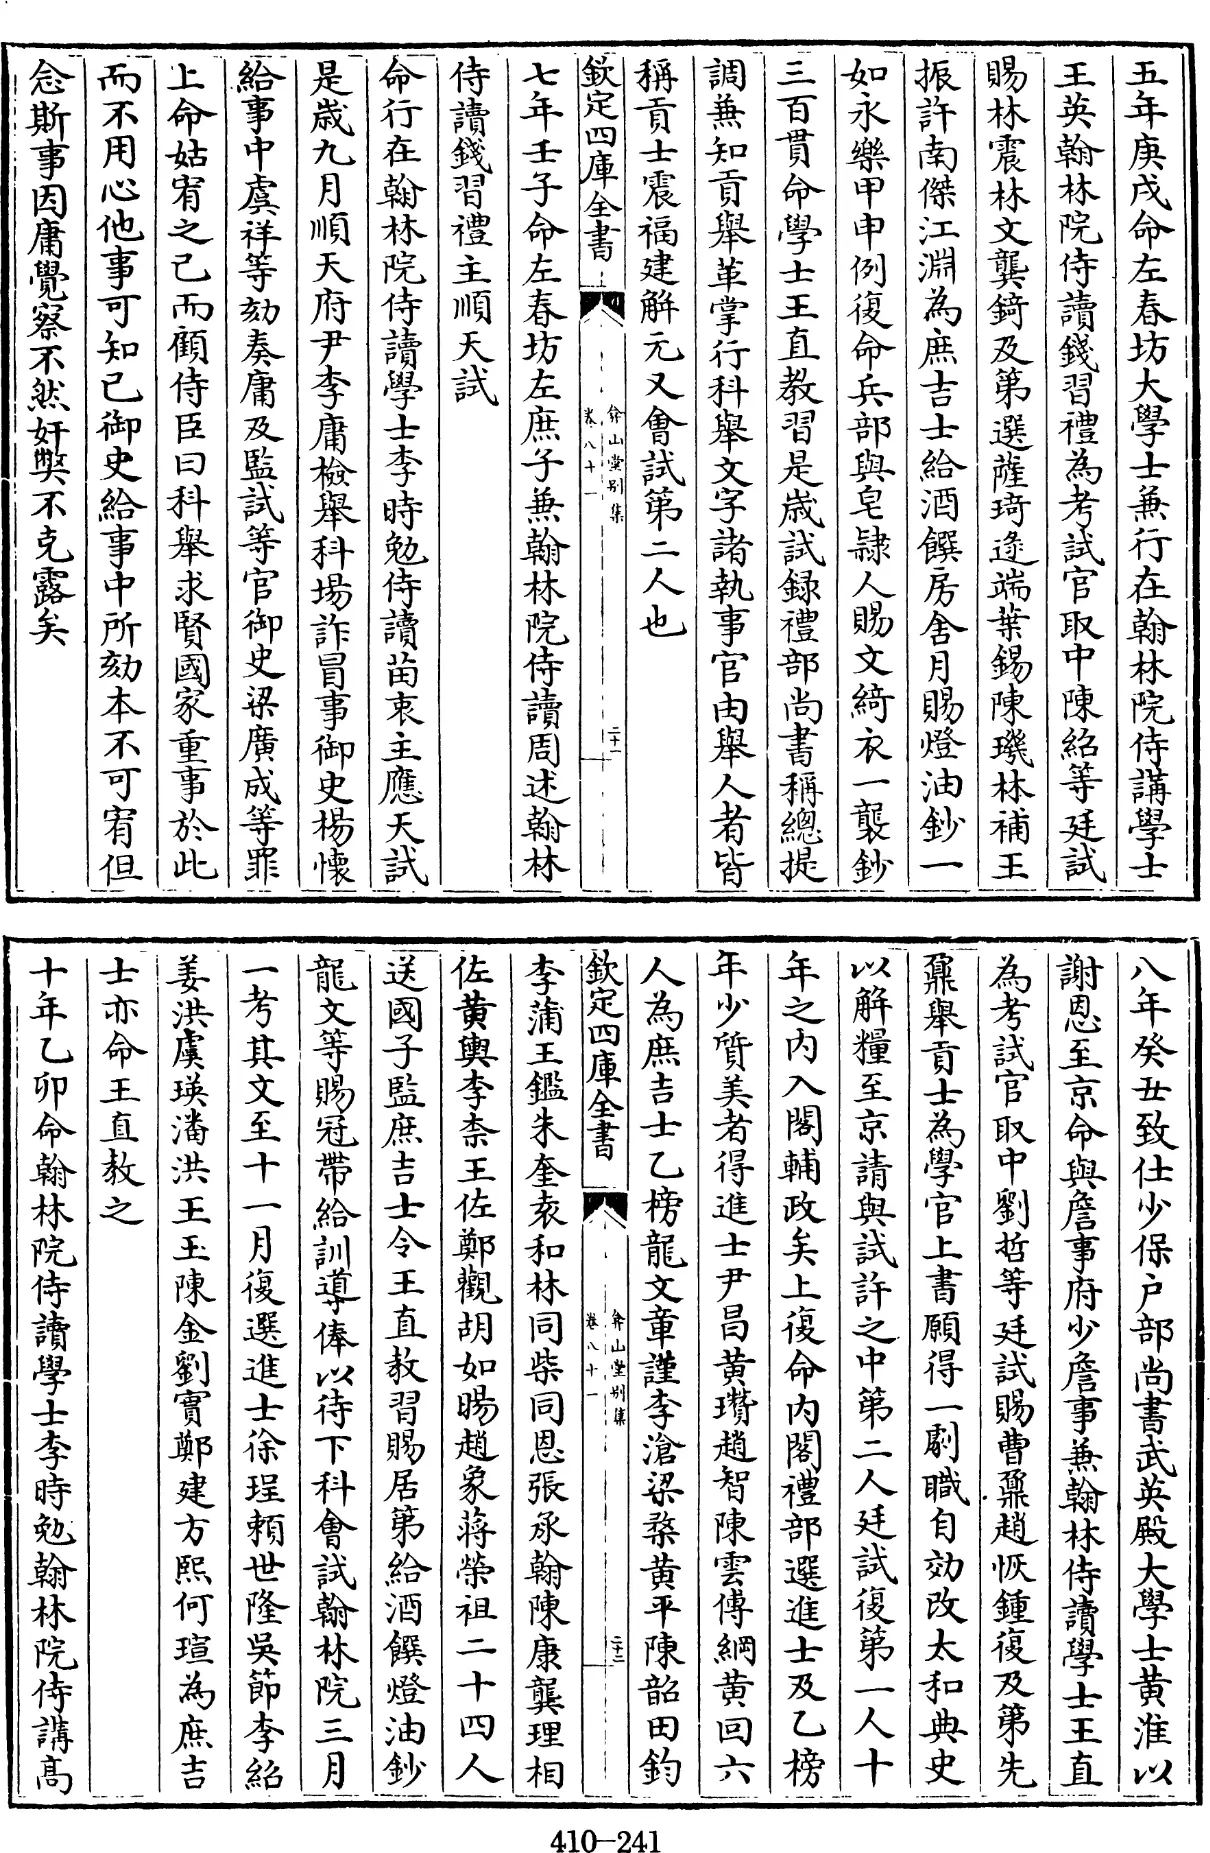 五年庚戌命左春坊大學士兼行在翰林院侍講學士
王英翰林院侍讀錢習禮為考試官取中陳紹等廷試
賜林震林文龔錡及第選薩琦逯端葉錫陳璣林補王
振許南傑江淵為庶吉士給酒饌房舍月賜燈油鈔一
如永樂甲申例復命兵部與皂隸人賜文綺衣一襲鈔
三百貫命學士王直教習是歲試録禮部尚書稱總提
調兼知貢舉革掌行科舉文字諸執事官由舉人者皆
稱貢士震福建解元又會試第二人也
欽定四庫全書
弇山堂別集
卷八十一
二十一
七年壬子命左春坊左庶子兼翰林院侍讀周述翰林
侍讀錢習禮主順天試
命行在翰林院侍讀學士李時勉侍讀苗衷主應天試
是歲九月順天府尹李庸檢舉科場詐冒事御史楊懷
給事中虞祥等劾奏庸及監試等官御史梁廣成等罪
上命姑宥之己而顧侍臣曰科舉求賢國家重事於此
而不用心他事可知已御史給事中所劾本不可宥但
念斯事因庸覺察不然奸弊不克露矣
八年癸丑致仕少保户部尚書武英殿大學士黄淮以
謝恩至京命與詹事府少詹事兼翰林侍讀學士王直
為考試官取中劉哲等廷試賜曹鼐趙恢鍾復及第先
鼐舉貢士為學官上書願得一劇職自効改太和典史
以解糧至京請與試許之中第二人廷試復第一人十
年之内入閣輔政矣上復命内閣禮部選進士及乙榜
年少質美者得進士尹昌黄瓚趙智陳雲傅綱黄回六
人為庶吉士乙榜龍文章謹李滄梁棨黄平陳韶田鈞
欽定四庫全書
弇山堂別集
卷八十一
二十二
李蒲王鑑朱奎袁和林同柴同恩張承翰陳康龔理相
佐黄輿李柰王佐鄭觀胡如暘趙象蔣榮祖二十四人
送國子監庶吉士令王直教習賜居第給酒饌燈油鈔
龍文等賜冠帶給訓導俸以待下科會試翰林院三月
一考其文至十一月復選進士徐珵頼世隆吳節李紹
姜洪虞瑛潘洪王玉陳金劉實鄭建方熙何瑄為庶吉
士亦命王直教之
十年乙卯命翰林院侍讀學士李時勉翰林院侍講高
410-241